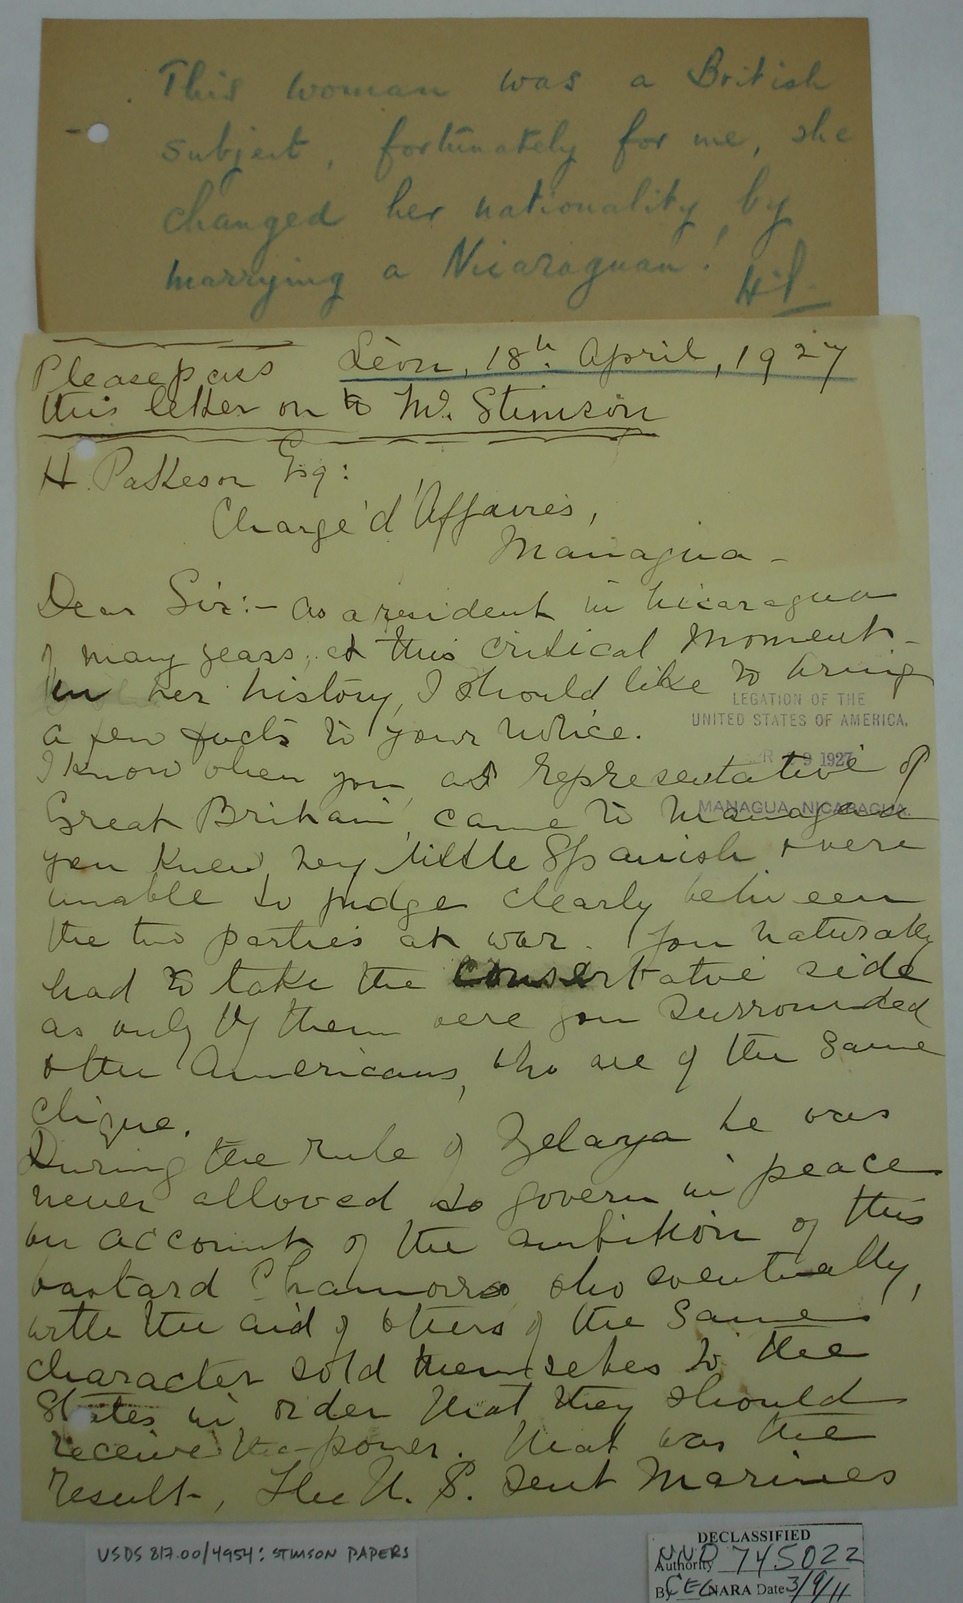 This woman was a British
subject, fortunately for me, she
changed her nationality, by
marrying a Nicaraguan!
H.P.
Please pass Léon, 18th April, 1927
this letter on to Mr. Stimson
H. Patteson Esq:
Chargé d'Affaires,
Managua -
Dear Sir:- As a resident in Nicaragua
of many years, at this critical moment -
in her history, I should like to bring
a few facts to your notice.
LEGATION OF THE
UNITED STATES OF AMERICA.
19 1927
MANAGUA, NICARAGUA
I know when you, as representative of
Great Britain, came to Managua
you knew very little Spanish & were
unable to judge clearly between
the two parties at war. You naturally
had to take the conservative side
as only by them were you surrounded
& the Americans, who are of the same
clique.
During the rule of Zelaya he was
never allowed to govern in peace
on account of the ambition of this
bastard Chamorro who eventually,
with the aid of others of the same
character sold themselves to the
States in order that they should
receive the power. That was the
result, The U. S. sent Marines
USDS 817.00/4954: STIMSON PAPERS
DECLASSIFIED
Authority NND 745022
By CEL NARA Date 3/9/11